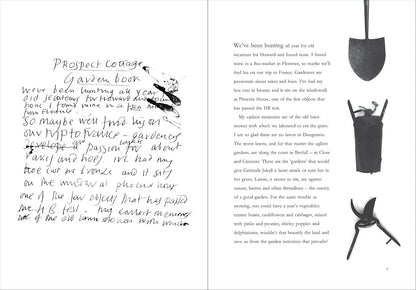 PROSPECT COTTAGE
Garden book
We've been hunting all year for
old secateurs for Howard and found
none I found mine in a flea market
So maybe we'll find his on
our trip to France – gardeners
develop a passion about
rakes and hoes. I've had my
hoe cast in bronze and it sits
on the
one of the few objects that has passed
the HB test. My earliest memories
are of the old lawn mower with which
We've been hunting all year for old
secateurs for Howard and found none. I found
mine in a flea market in Florence, so maybe we'll
find his on our trip to France. Gardeners are
passionate about rakes and hoes. I have had my
hoe cast in bronze and it sits on the windowsill
at Phoenix House, one of the few objects that
has passed the HB test.
My earliest memories are of the old lawn-
mower with which we laboured to cut the grass.
I am so glad there are no lawns in Dungeness.
The worst lawns, and for that matter the ugliest
gardens, are along the coast in Bexhill – in Close
and Crescent. These are the 'gardens' that would
give Gertrude Jekyll a heart attack or turn her in
her grave. Lawns, it seems to me, are against
nature, barren and often threadbare – the enemy
of a good garden. For the same trouble as
mowing, you could have a year's vegetables:
runner beans, cauliflowers and cabbages, mixed
with pinks and peonies, shirley poppies and
delphiniums; wouldn't that beautify the land and
save us from the garden terrorism that prevails?
7